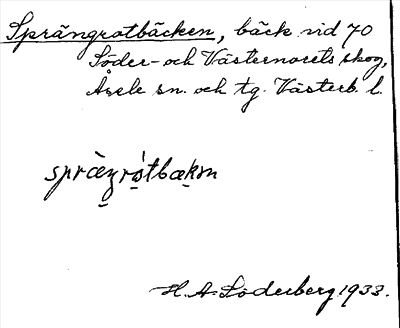 Sprängrotbäcken, bäck vid 70
Söder- och Västernorets skog,
Åsele sn. och tg. Västerb. l.
språ̀ŋrótbækən
H. A. Söderberg 1933.